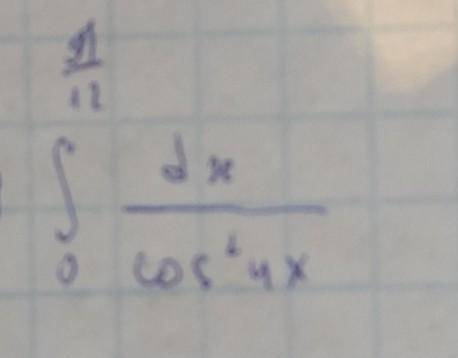 π
12
∫ dx
0 cos² 4x